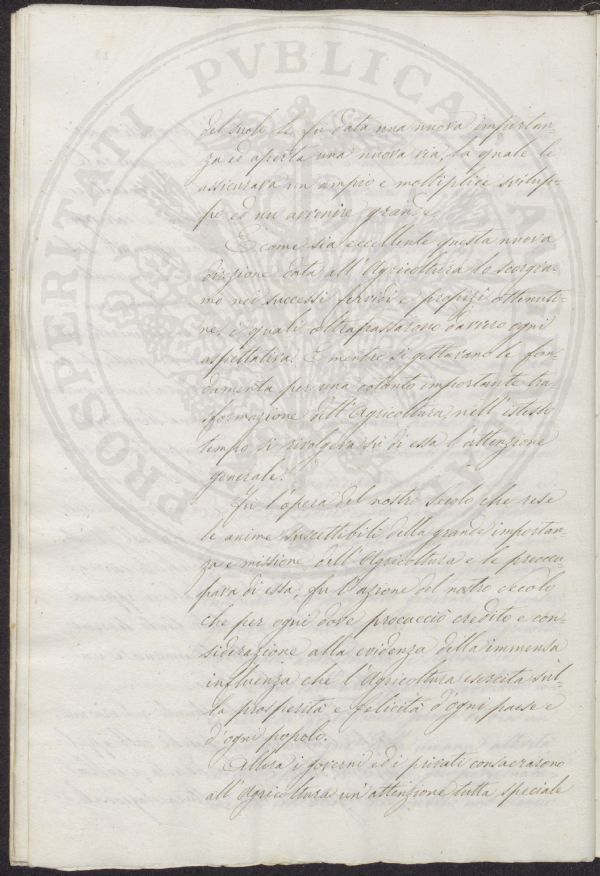 PROSPERITATI PVBLICAE
del suolo le fu data una nuova importan-
za ed aperta una nuova via, la quale le
assicurava un ampio e moltiplice svilup-
po ed un avvenire grande.
E come sia eccellente questa nuova
direzione data all'Agricoltura lo scorgia-
mo nei successi fervidi e propizj ottenuti-
ne, i quali oltrapassarono davvero ogni
aspettativa. E mentre si gettavano le fon-
damenta per una cotanto importante tra-
sformazione dell'Agricoltura, nell'istesso
tempo si rivolgeva su di essa l'attenzione
generale.
Fu l'opera del nostro secolo che rese
le anime suscettibili della grande importan-
za e missione dell'Agricoltura e le preoccu-
pava di essa, fu l'azione del nostro secolo
che per ogni dove procacciò credito e con-
siderazione alla evidenza della immensa
influenza che l'Agricoltura esercita sul-
la prosperità e felicità d'ogni paese e
d'ogni popolo.
Allora i governi ed i privati consacrarono
all'Agricoltura un'attenzione tutta speciale